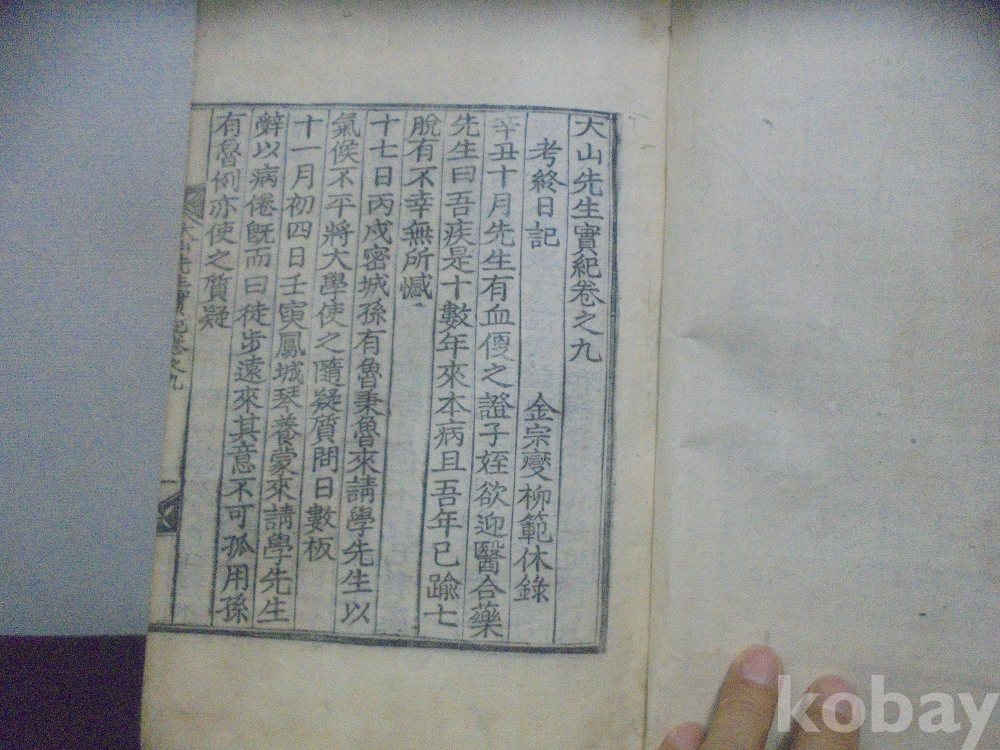 大山先生實紀卷之九
考終日記 金宗燮柳範休錄
辛丑十月先生有血㑄之證子姪欲迎醫合藥
先生曰吾疾是十數年來本病且吾年已踰七
脫有不幸無所憾
十七日丙戌密城孫有魯秉魯來請學先生以
氣候不平將大學使之隨疑質問日數板
十一月初四日壬寅鳳城琴養蒙來請學先生
辭以病倦旣而曰徒步遠來其意不可孤用孫
有魯例亦使之質疑
大山先生實紀卷之九 一
kobay